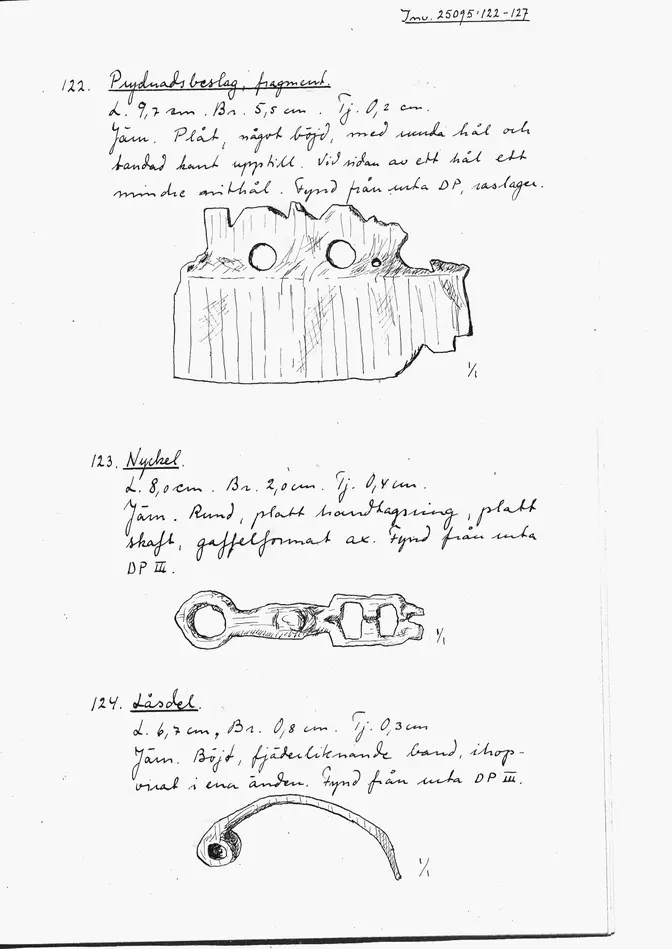 Inv. 25095:122-127
122. Prydnadsbeslag, fragment.
L. 9,7 cm. Br. 5,5 cm. Tj. 0,2 cm.
Järn. Plåt, något böjd, med runda hål och
tandad kant upptill. Vid sidan av ett hål ett
mindre nithål. Fynd från ruta DP, raslager.
1/1
123. Nyckel.
L. 8,0 cm. Br. 2,0 cm. Tj. 0,4 cm.
Järn. Rund, platt handtagsring, platt
skaft, gaffelformat ax. Fynd från ruta
DP III.
1/1
124. Låsdel.
L. 6,7 cm, Br. 0,8 cm. Tj. 0,3 cm
Järn. Böjt, fjäderliknande band, ihop-
virat i ena änden. Fynd från ruta DP III.
1/1